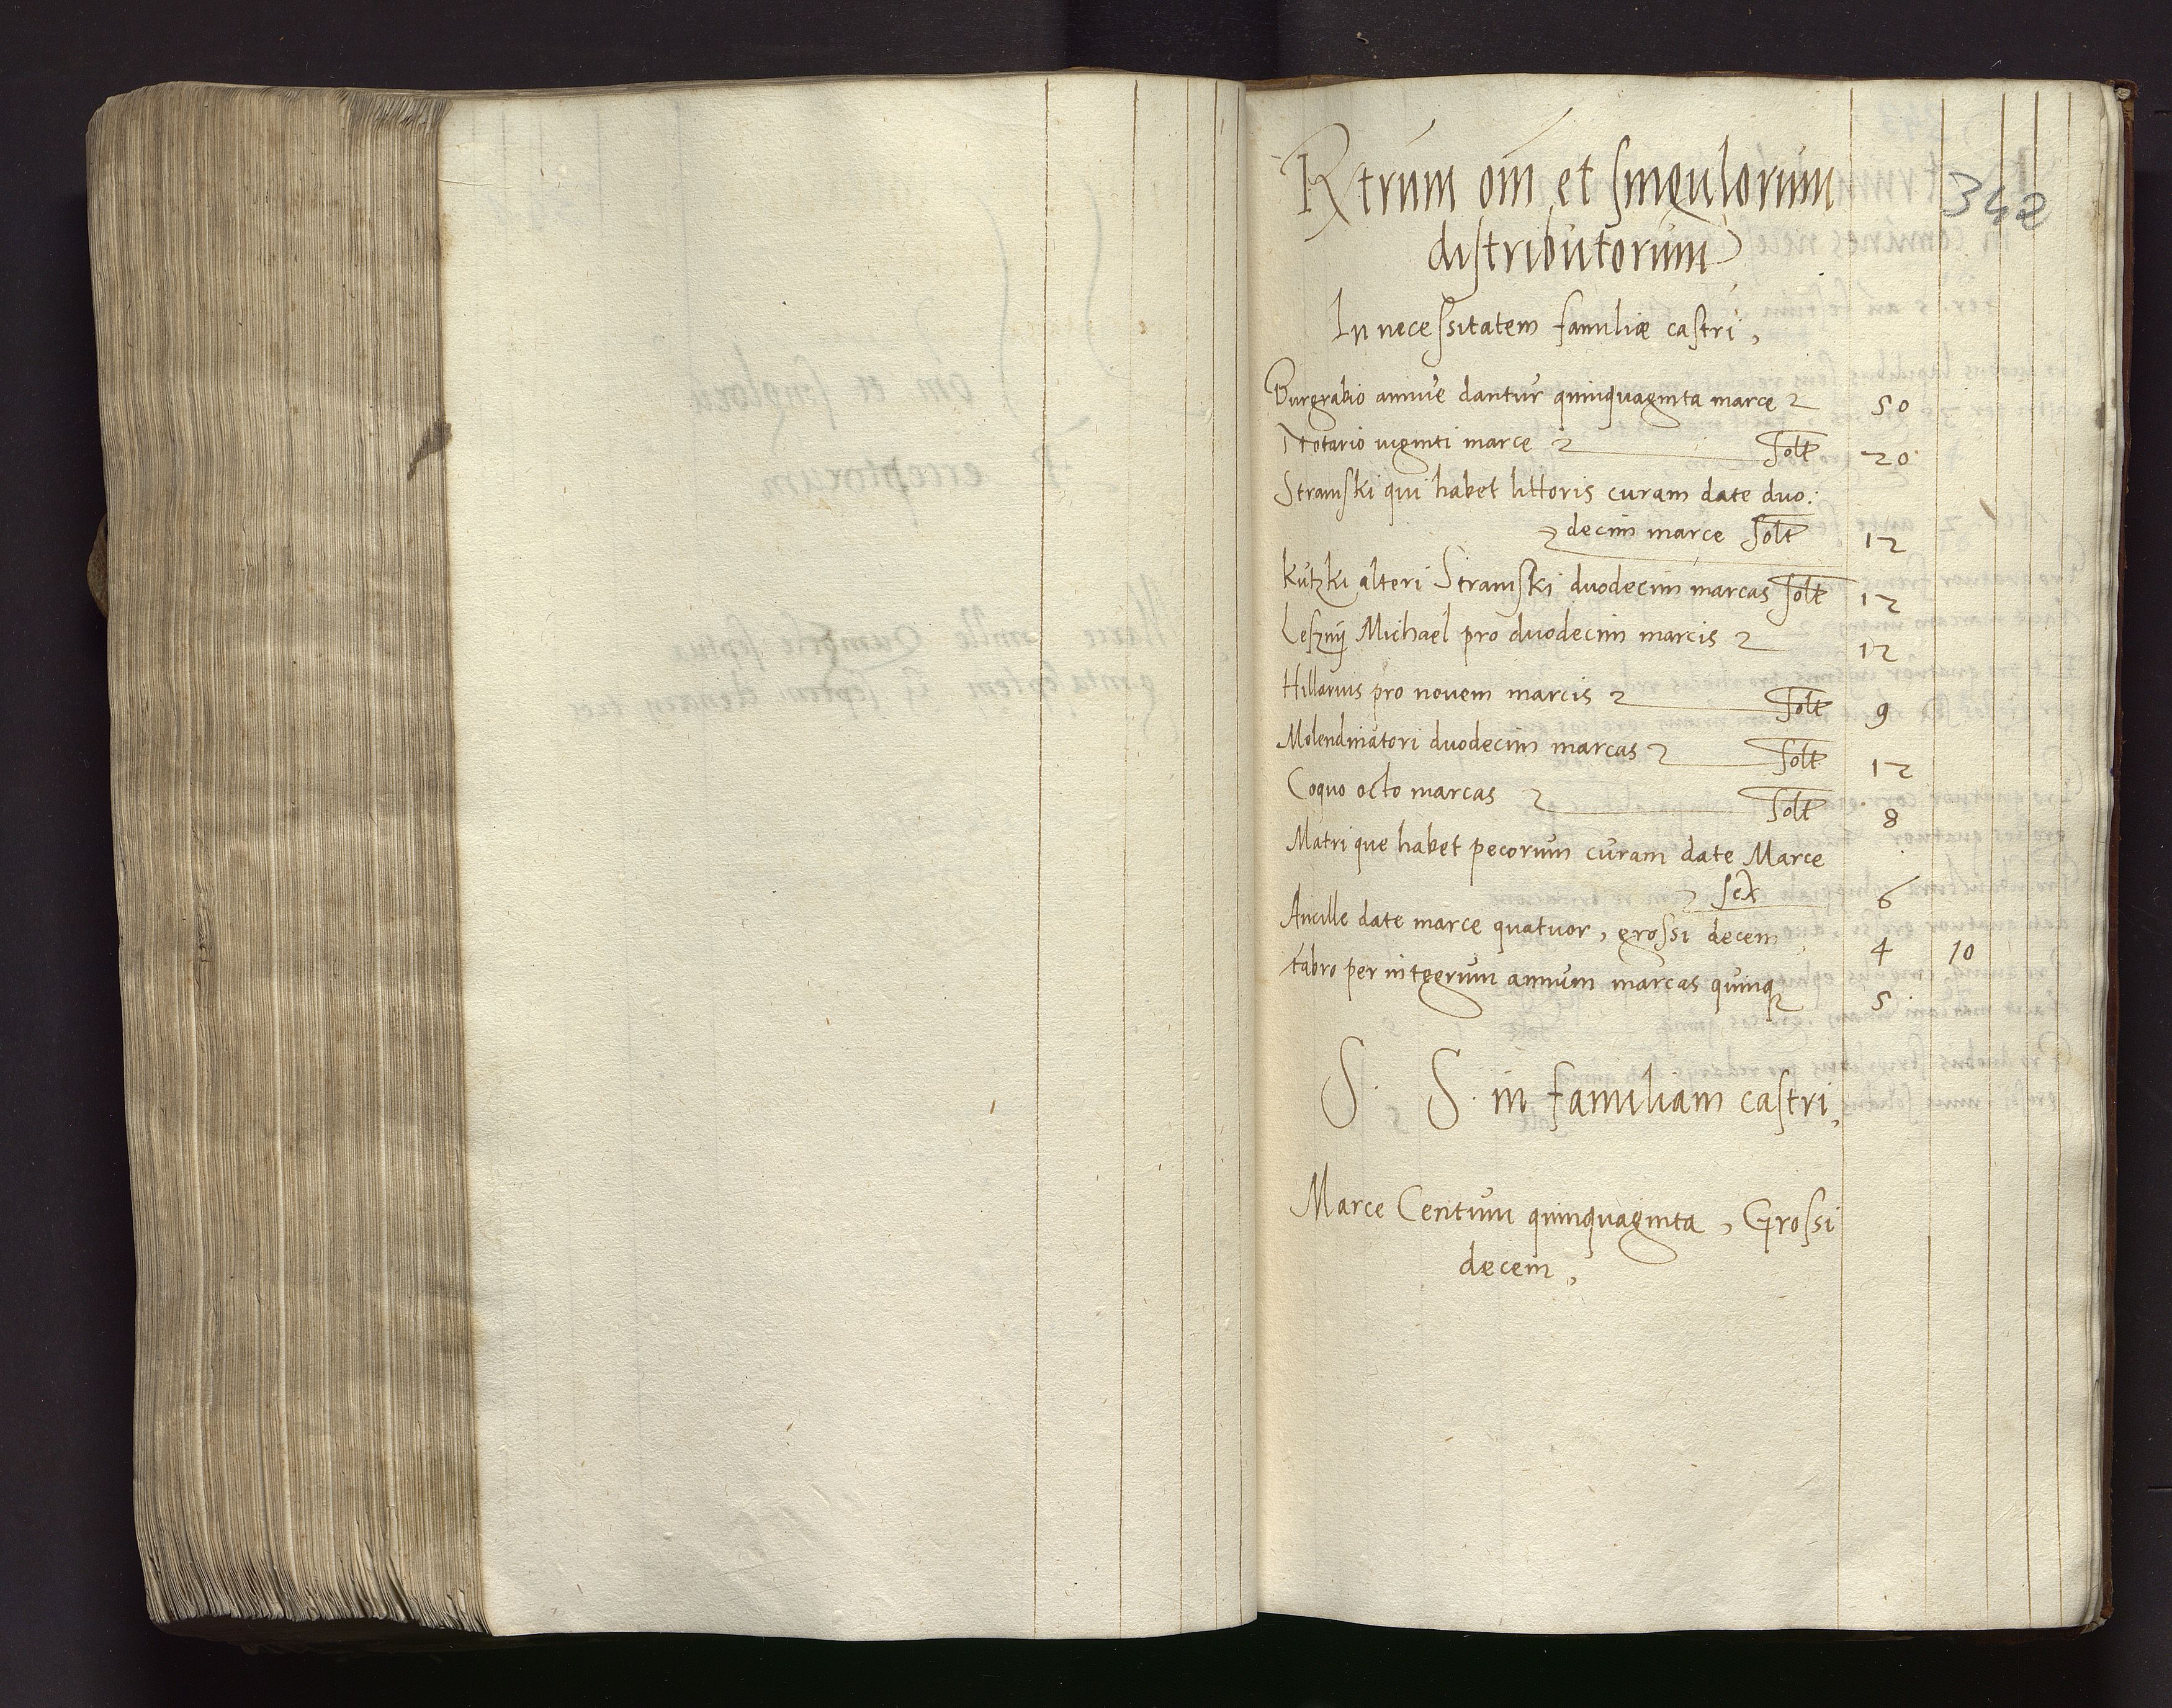 Rtrum om et singulorum
342
distributorum
In necessitatem familiæ castri,
Burgrabio annue dantur quinquaginta marce 50
Notario viginti marce solt 20
Stramski qui habet littoris curam date duo:
decim marce solt 12
Kutzki alteri Stramski duodecim marcas solt 12
Leszny Michael pro duodecim marcis 12
Hillarius pro novem marcis solt 9
Molendinatori duodecim marcas solt 12
Coquo octo marcas solt 8
Matri que habet pecorum curam date Marce
sex 6
Ancille date marce quatuor, grossi decem 4 10
fabro per integrum annum marcas quinq 5
S. S. in familiam castri,
Marce Centum quinquaginta, Grossi
decem,